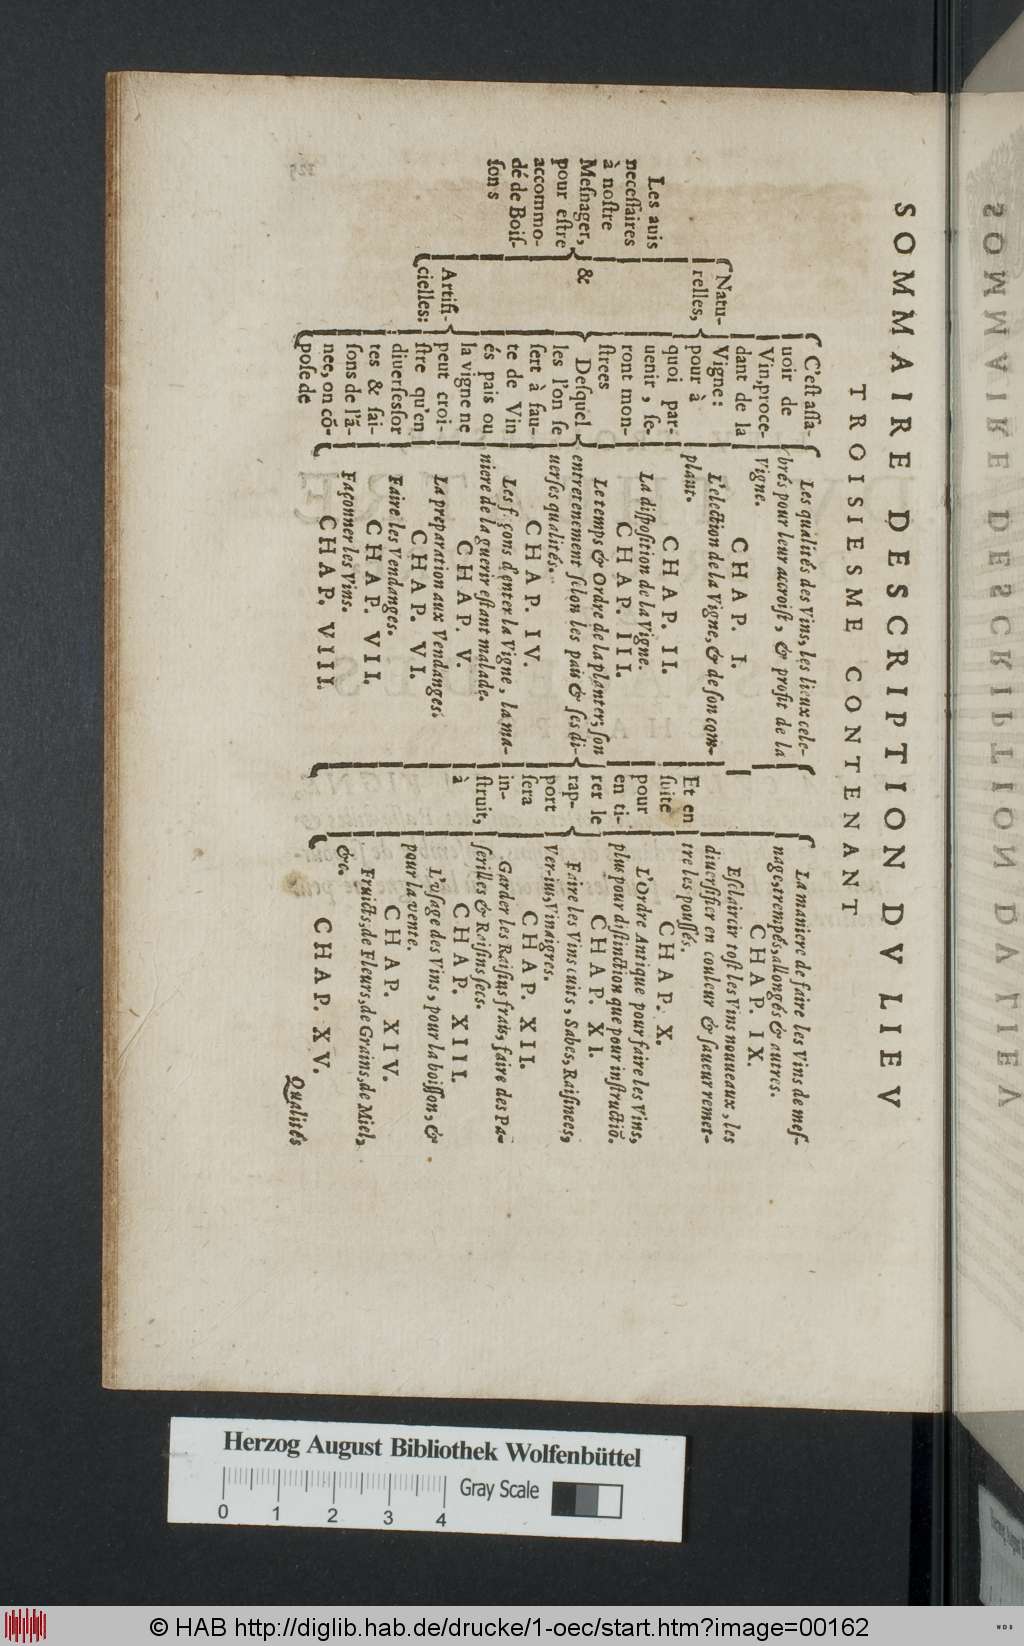 SOMMAIRE DESCRIPTION DV LIEV
TROISIESME CONTENANT
Les auis
necessaires
à nostre
Mesnager,
pour estre
accommo-
dé de Bois-
sons
Natu-
relles,
&
Artifi-
cielles:
C'est assa-
uoir de
Vin, proce-
dant de la
Vigne:
pour à
quoi par-
uenir, se-
ront mon-
strees
Desquel
les l'on se
sert à fau-
te de Vin
és païs ou
la vigne ne
peut croi-
stre qu'en
diuerses sor
tes & sai-
sons de l'ã-
nee, on cõ-
pose de
Les qualités des Vins, les lieux cele-
brés pour leur accroist, & profit de la
Vigne.
CHAP. I.
L'election de la Vigne, & de son com-
plant.
CHAP. II.
La disposition de la Vigne.
CHAP. III.
Le temps & Ordre de la planter; son
entretenement selon les païs & ses di-
uerses qualités.
CHAP. IV.
Les f çons d'enter la Vigne, la ma-
niere de la guerir estant malade.
CHAP. V.
La preparation aux Vendanges.
CHAP. VI.
Faire les Vendanges.
CHAP. VII.
Façonner les Vins.
CHAP. VIII.
Et en
suite
pour
en ti-
rer le
rap-
port
sera
in-
struit,
à
La maniere de faire les Vins de mes-
nage, trempés, allongés & autres.
CHAP. IX.
Esclaircir tost les Vins nouueaux, les
diuersifier en couleur & saueur remet-
tre les poussés.
CHAP. X.
L'Ordre Antique pour faire les Vins,
plus pour distinction que pour instructiõ.
CHAP. XI.
Faire les Vins cuits, Sabes, Raisinees,
Ver-ius, Vinaigres.
CHAP. XII.
Garder les Raisins frais, faire des Pa-
serilles & Raisins secs.
CHAP. XIII.
L'vsage des Vins, pour la boisson, &
pour la vente.
CHAP. XIV.
Fruicts, de Fleurs, de Grains, de Miel,
&c.
CHAP. XV.
Qualités
Herzog August Bibliothek Wolfenbüttel
0 1 2 3 4
Gray Scale
© HAB http://diglib.hab.de/drucke/1-oec/start.htm?image=00162